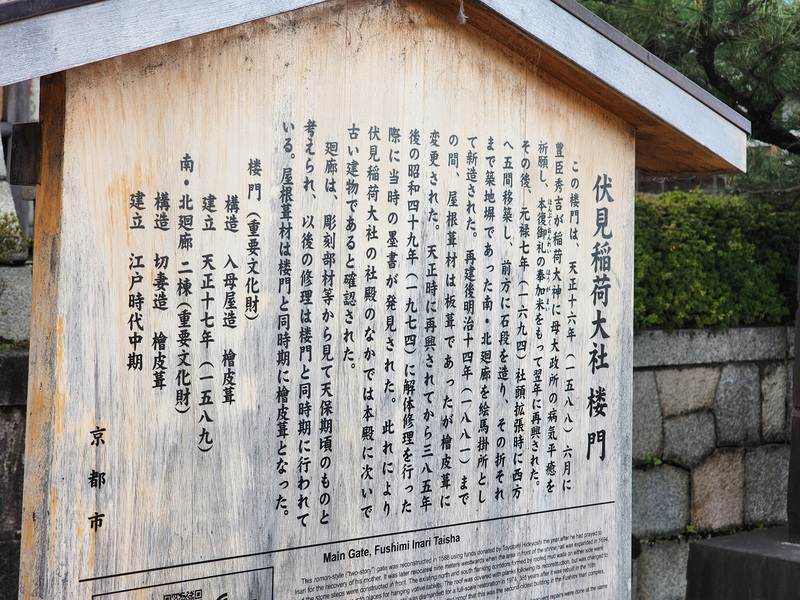 伏見稲荷大社 楼門
この楼門は、天正十六年(一五八八)六月に
豊臣秀吉が稲荷大神に母大政所の病気平癒を
祈願し、本復御礼の奉加米をもって翌年に再興された。
その後、元禄七年(一六九四)社頭拡張時に西方
へ五間移築し、前方に石段を造り、その折それ
まで築地塀であった南・北廻廊を絵馬掛所とし
て新造された。再建後明治十四年(一八八一)まで
の間、屋根葺材は板葺であったが檜皮葺に
変更された。天正時に再興されてから三八五年
後の昭和四十九年(一九七四)に解体修理を行った
際に当時の墨書が発見された。此れにより
伏見稲荷大社の社殿のなかでは本殿に次いで
古い建物であると確認された。
廻廊は、彫刻部材等から見て天保期頃のものと
考えられ、以後の修理は楼門と同時期に行われて
いる。屋根葺材は楼門と同時期に檜皮葺となった。
楼門(重要文化財)
構造 入母屋造 檜皮葺
建立 天正十七年(一五八九)
南・北廻廊 二棟(重要文化財)
構造 切妻造 檜皮葺
建立 江戸時代中期
京都市
Main Gate, Fushimi Inari Taisha
This romon-style ("two-story") gate was reconstructed in 1588 using funds donated by Toyotomi Hideyoshi the year after he had prayed to
Inari for the recovery of his mother. It was later relocated nine meters westwards when the area in front of the shrine was expanded in 1694,